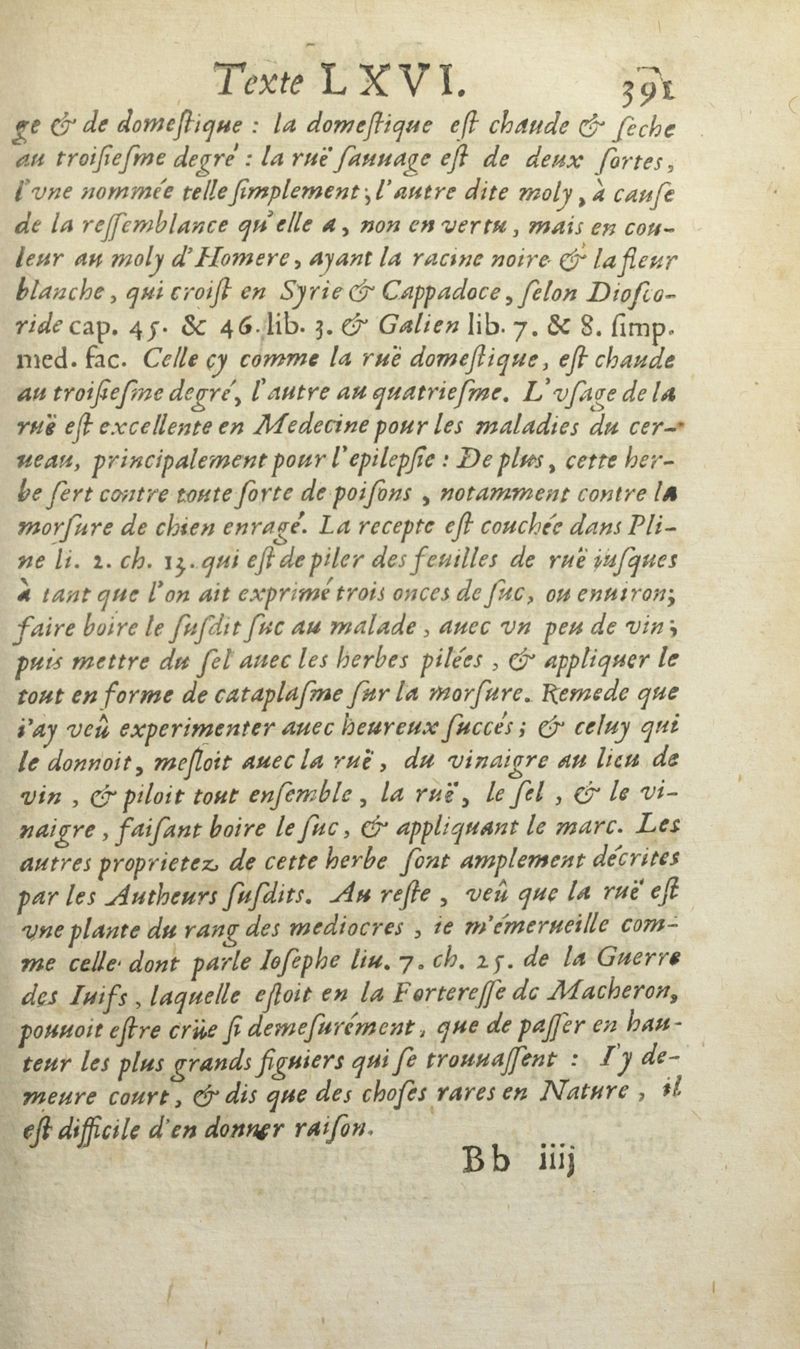 Texte LXVI. 391
ge & de domeſtique : la domeſtique eſt chaude & ſeche
au troiſieſme degré : la ruë ſauuage eſt de deux ſortes,
l'vne nommée telle ſimplement ; l'autre dite moly, à cauſe
de la reſſemblance qu'elle a, non en vertu, mais en cou-
leur au moly d'Homere, ayant la racine noire & la fleur
blanche, qui croiſt en Syrie & Cappadoce, ſelon Dioſco-
ride cap. 45. & 46. lib. 3. & Galien lib. 7. & 8. ſimp.
med. fac. Celle cy comme la ruë domeſtique, eſt chaude
au troiſieſme degré, l'autre au quatrieſme. L'vſage de la
ruë eſt excellente en Medecine pour les maladies du cer-
ueau, principalement pour l'epilepſie : De plus, cette her-
be ſert contre toute ſorte de poiſons , notamment contre la
morſure de chien enragé. La recepte eſt couchée dans Pli-
ne li. 2. ch. 13. qui eſt de piler des feuilles de ruë iuſques
à tant que l'on ait exprimé trois onces de ſuc, ou enuiron;
faire boire le ſuſdit ſuc au malade , auec vn peu de vin ;
puis mettre du ſel auec les herbes pilées , & appliquer le
tout en forme de cataplaſme ſur la morſure. Remede que
i'ay veû experimenter auec heureux ſuccés ; & celuy qui
le donnoit, meſloit auec la ruë , du vinaigre au lieu de
vin , & piloit tout enſemble , la ruë, le ſel , & le vi-
naigre , faiſant boire le ſuc, & appliquant le marc. Les
autres proprietez de cette herbe ſont amplement décrites
par les Autheurs ſuſdits. Au reſte , veû que la ruë eſt
vne plante du rang des mediocres , ie m'émerueille com-
me celle dont parle Ioſephe liu. 7. ch. 25. de la Guerre
des Iuifs , laquelle eſtoit en la Fortereſſe de Macheron,
pouuoit eſtre crüe ſi demeſurément , que de paſſer en hau-
teur les plus grands figuiers qui ſe trouuaſſent : I'y de-
meure court , & dis que des choſes rares en Nature , il
eſt difficile d'en donner raiſon.
Bb iiij